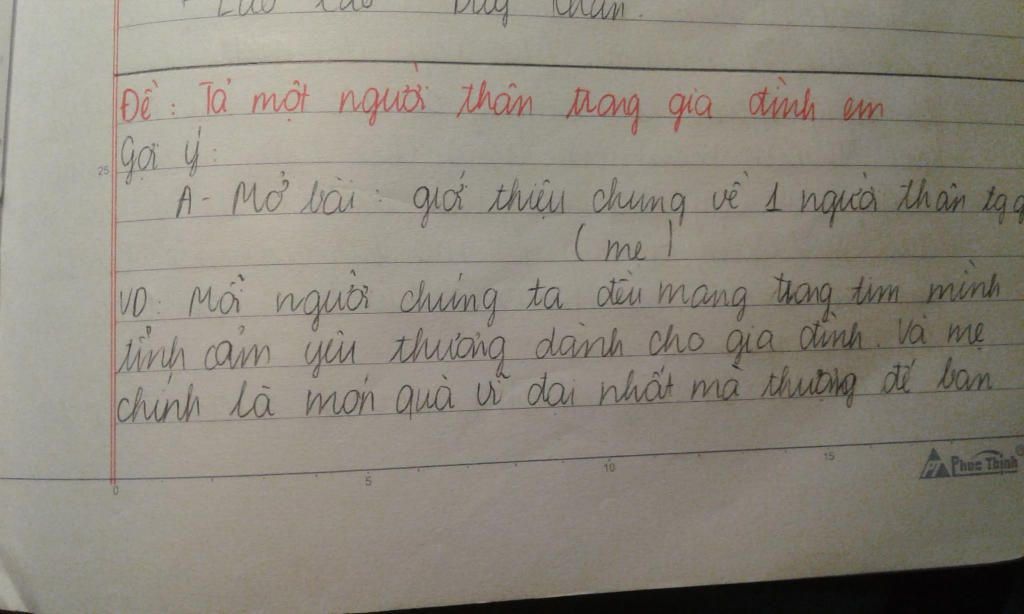 Đề: Tả một người thân trong gia đình em
Gợi ý:
25
A- Mở bài: giới thiệu chung về 1 người thân tgg
(mẹ)
VD: Mỗi người chúng ta đều mang trong tim mình
tình cảm yêu thương dành cho gia đình. Và mẹ
chính là món quà vĩ đại nhất mà thượng đế ban
0 5 10 15
Phuc Thịnh